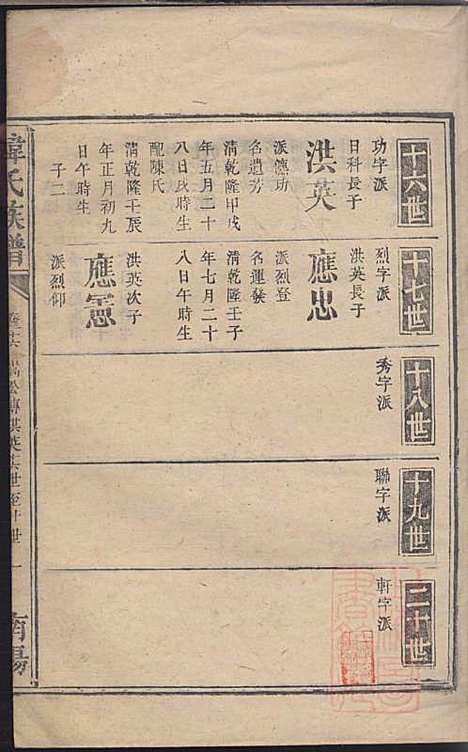 十六世
功字派
日科長子
洪英
派德功
名遺芳
清乾隆甲戌
年五月二十
八日戌時生
配陳氏
清乾隆壬辰
年正月初九
日午時生
子二
十七世
烈字派
洪英長子
應忠
派烈登
名運發
清乾隆壬子
年七月二十
八日午時生
洪英次子
應憲
派烈仰
十八世
秀字派
十九世
聯字派
二十世
軒字派
韋氏族譜
南陽